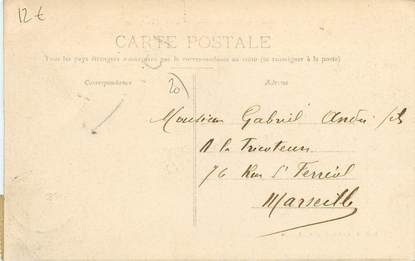 12 €
CARTE POSTALE
Tous les pays étrangers n'acceptent pas la correspondance au recto (se renseigner à la poste)
Correspondance
Adresse
20
Monsieur Gabriel André
A la Tricoteuse
76 Rue St Ferréol
Marseille